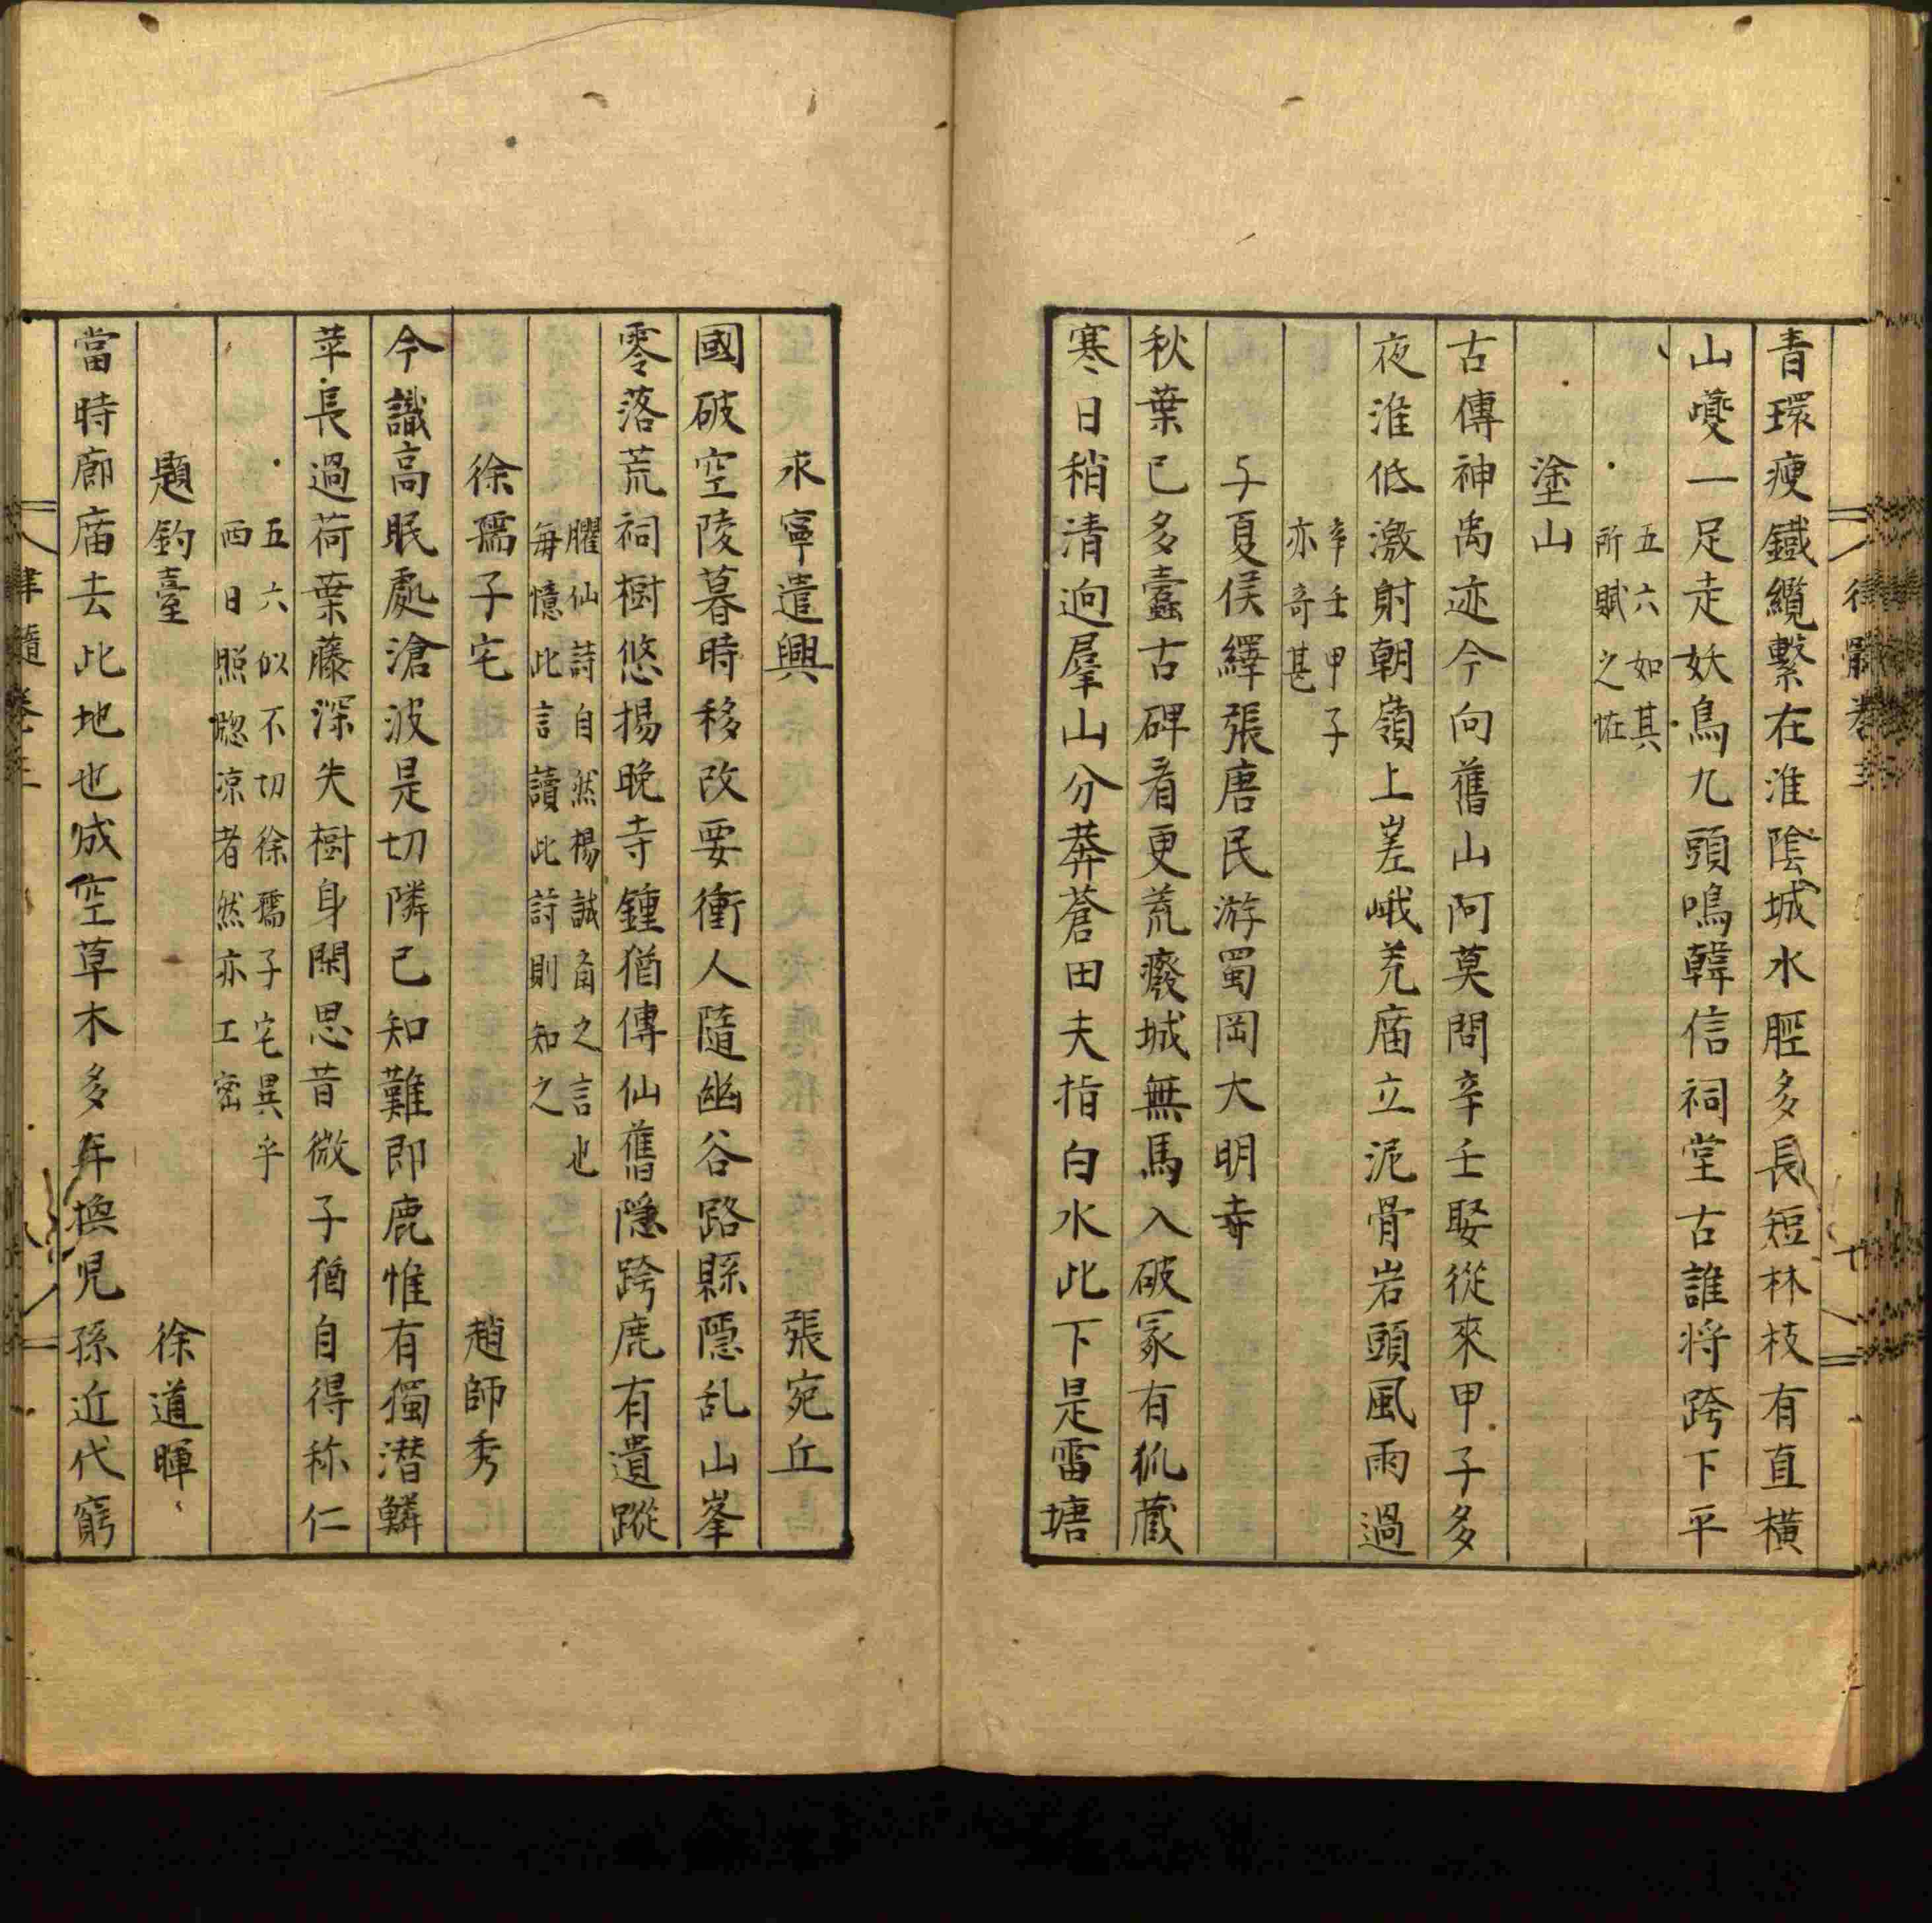 青環瘦鐵纜繫在淮陰城水脛多長短林枝有直橫
山夔一足走妖鳥九頭鳴韓信祠堂古誰将跨下平
五六如其
所賦之恠
塗山
古傳神禹迹今向舊山阿莫問辛壬娶從來甲子多
夜淮低激射朝嶺上嵳峨荒庙立泥骨岩頭風雨過
辛壬甲子
亦奇甚
与夏侯繹張唐民游蜀岡大明寺
秋葉已多蠹古碑看更荒癈城無馬入破冢有狐藏
寒日稍清逈羣山分莽蒼田夫指白水此下是雷塘
永寧遣興 張宛丘
國破空陵暮時移改要衝人隨幽谷路縣隱乱山峯
零落荒祠樹悠揚晚寺鍾猶傳仙舊隐跨鹿有遺蹤
臞仙詩自然楊誠斎之言也
每憶此言讀此詩則知之
徐孺子宅 趙師秀
今識高眠處滄波是切隣已知難即鹿惟有獨潜鱗
苹長過荷葉藤深失樹身閑思昔微子猶自得称仁
五六似不切徐孺子宅異乎
西日照窓凉者然亦工密
題釣臺 徐道暉
當時廊庙去此地也成空草木多年換児孫近代窮
律髓卷三